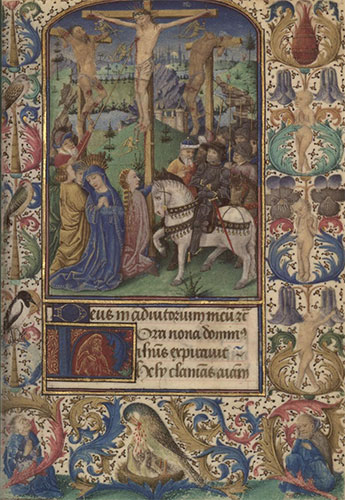 Deus in adiutorium meū
Hora nona domin
ihūs expirauit
hely clamans aīam